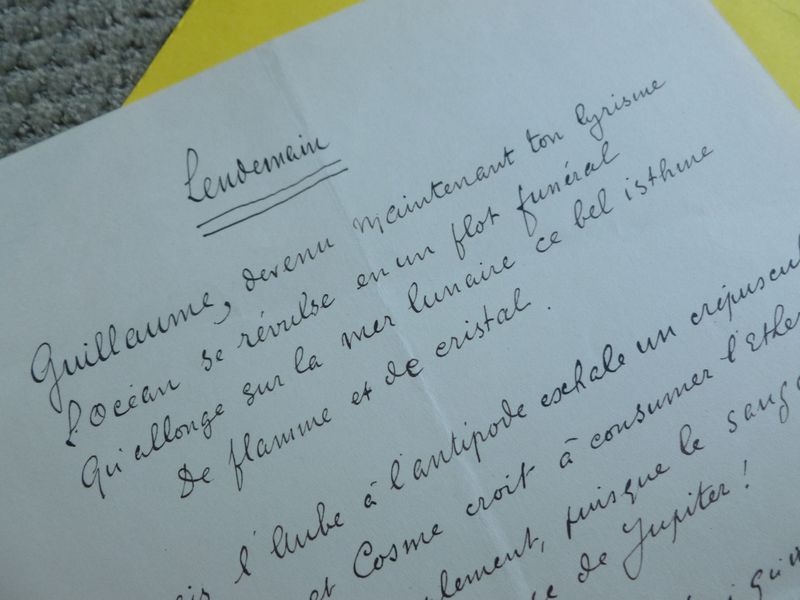 Lendemain
Guillaume, devenu maintenant ton lyrisme
L'Océan se révulse en un flot funéral
Qu'allonge sur la mer lunaire ce bel isthme
De flamme et de cristal.
l'Aube à l'antipode exhale un crépuscul
et Cosme croit à consumer l'Ether
puisque le
de Jupiter!